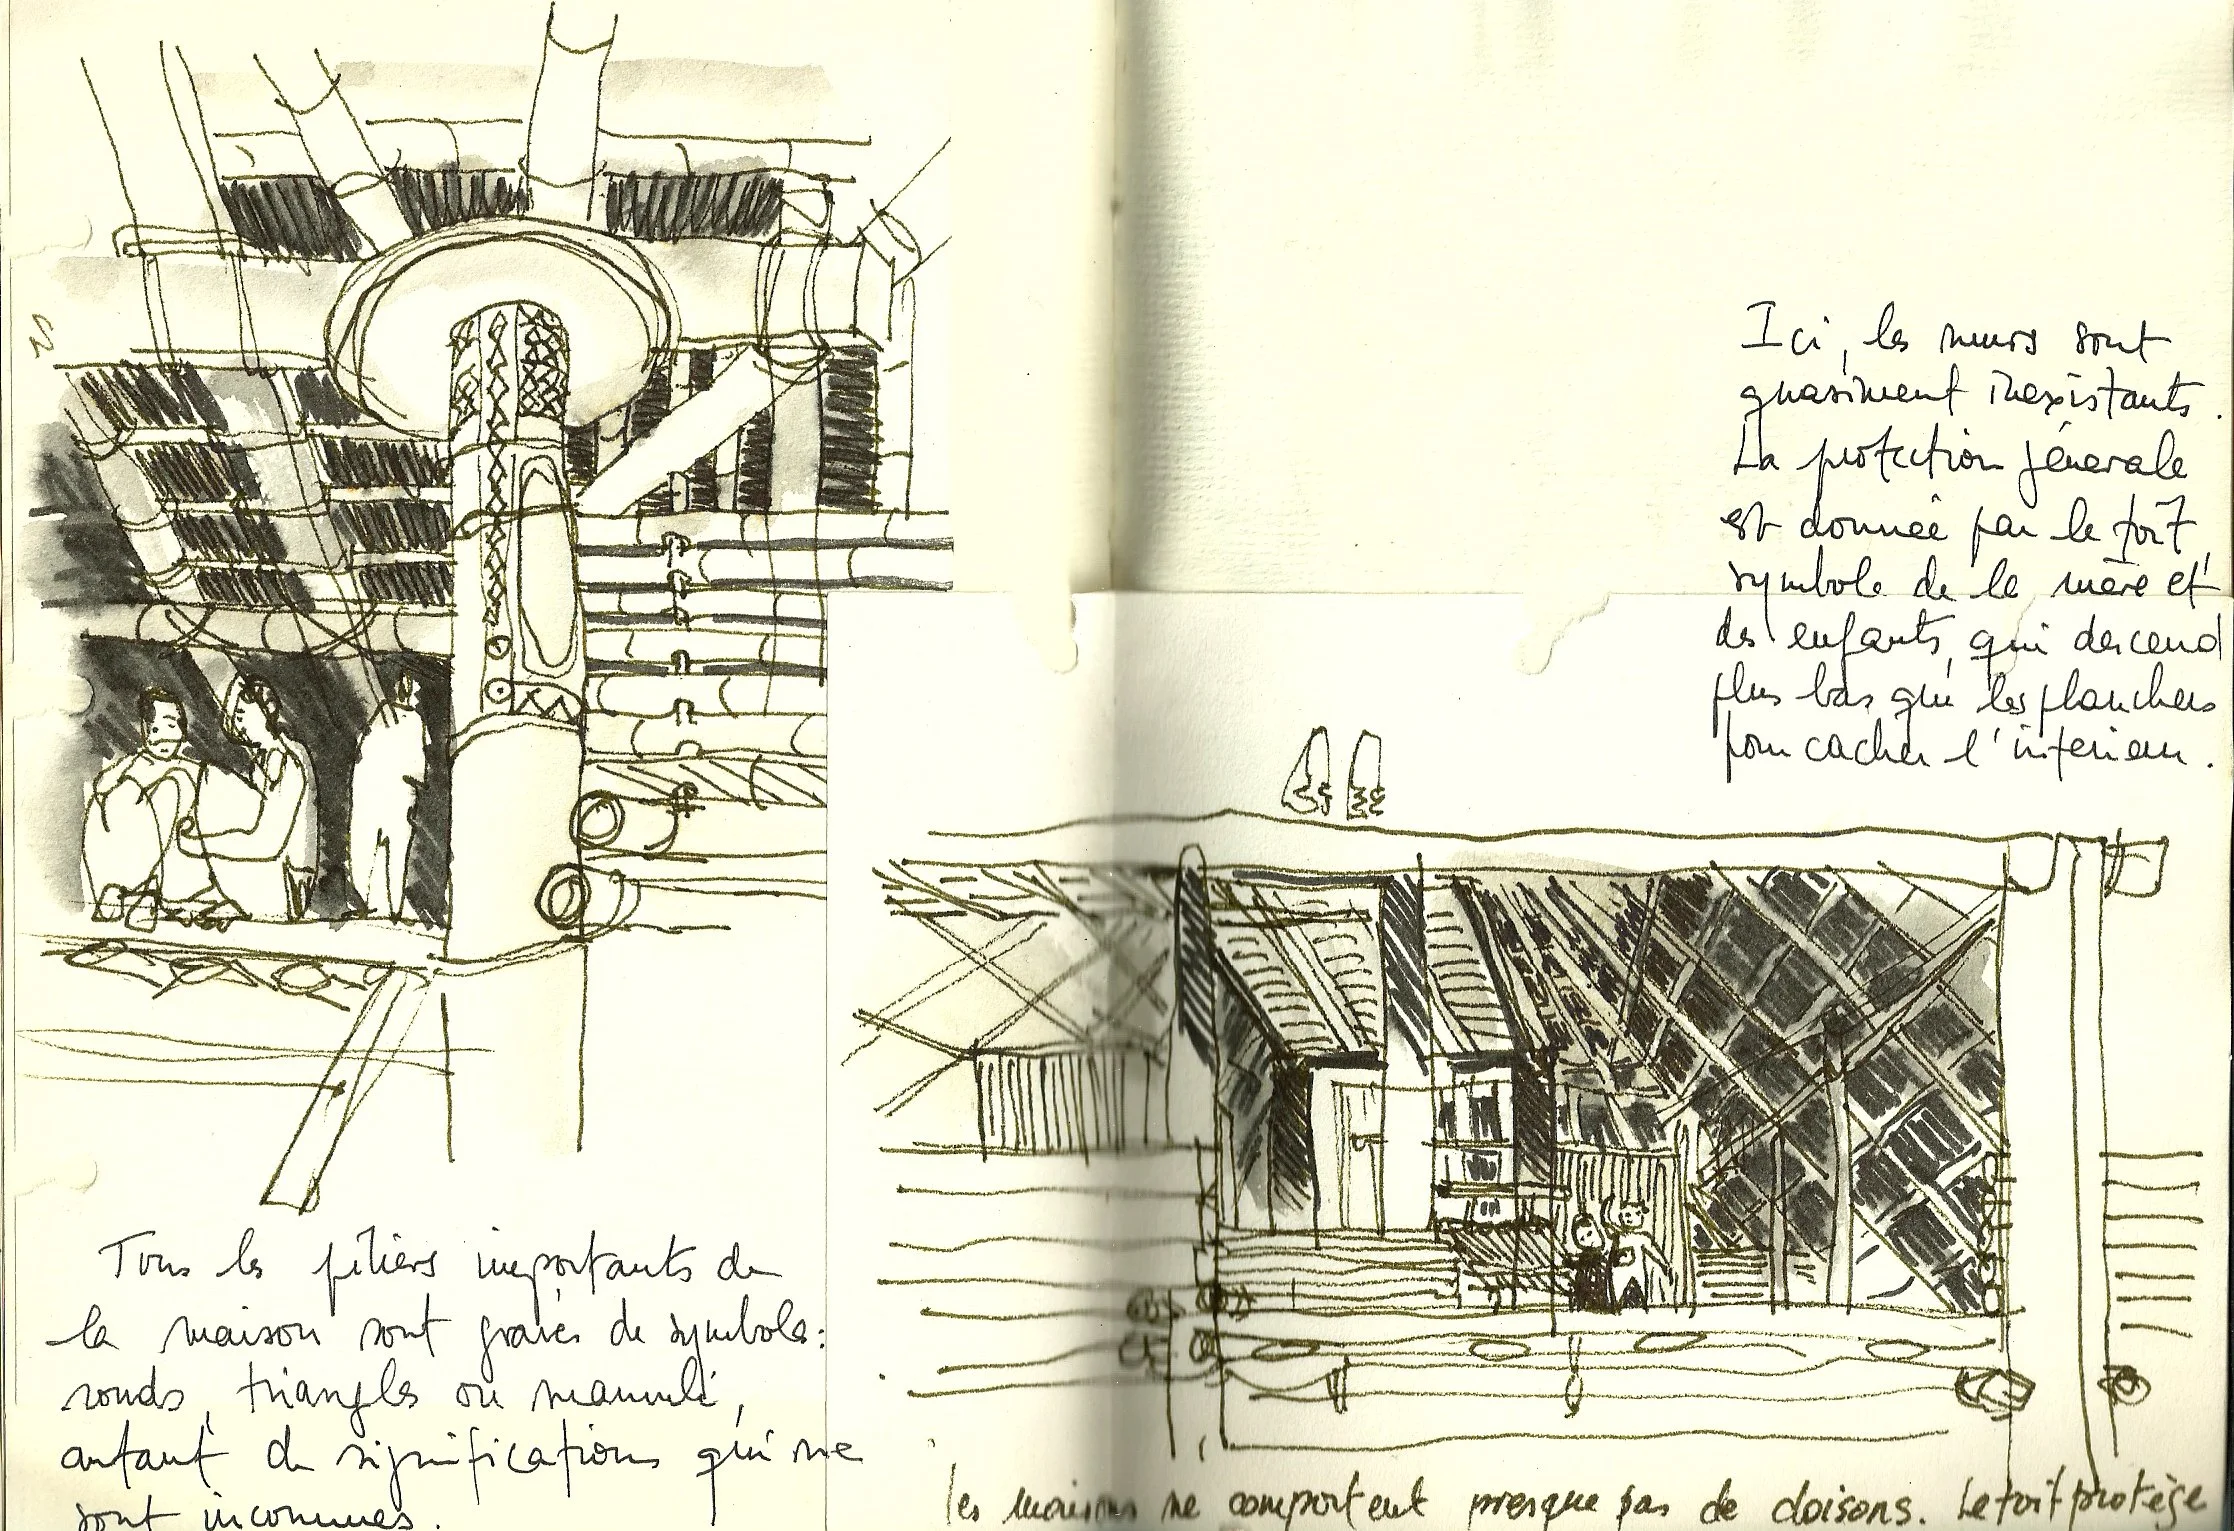 Tous les piliers importants de
la maison sont gravés de symboles:
ronds, triangles ou
autant de significations qui me
sont inconnues.
Ici, les murs sont
quasiment inexistants.
La protection générale
est donnée par le toit,
symbole de la mère et
des enfants, qui descend
plus bas que les planchers
pour cacher l'intérieur.
les maisons ne comportent presque pas de cloisons. Le toit protège